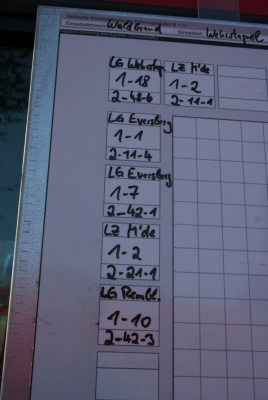 Waldbrand
Webestapel
LG Webestap
1-18
2-48-6
LZ M'de
1-2
2-11-1
LG Eversberg
1-1
2-11-4
LG Eversberg
1-7
2-42-1
LZ M'de
1-2
2-21-1
LG Rembl.
1-10
2-42-3